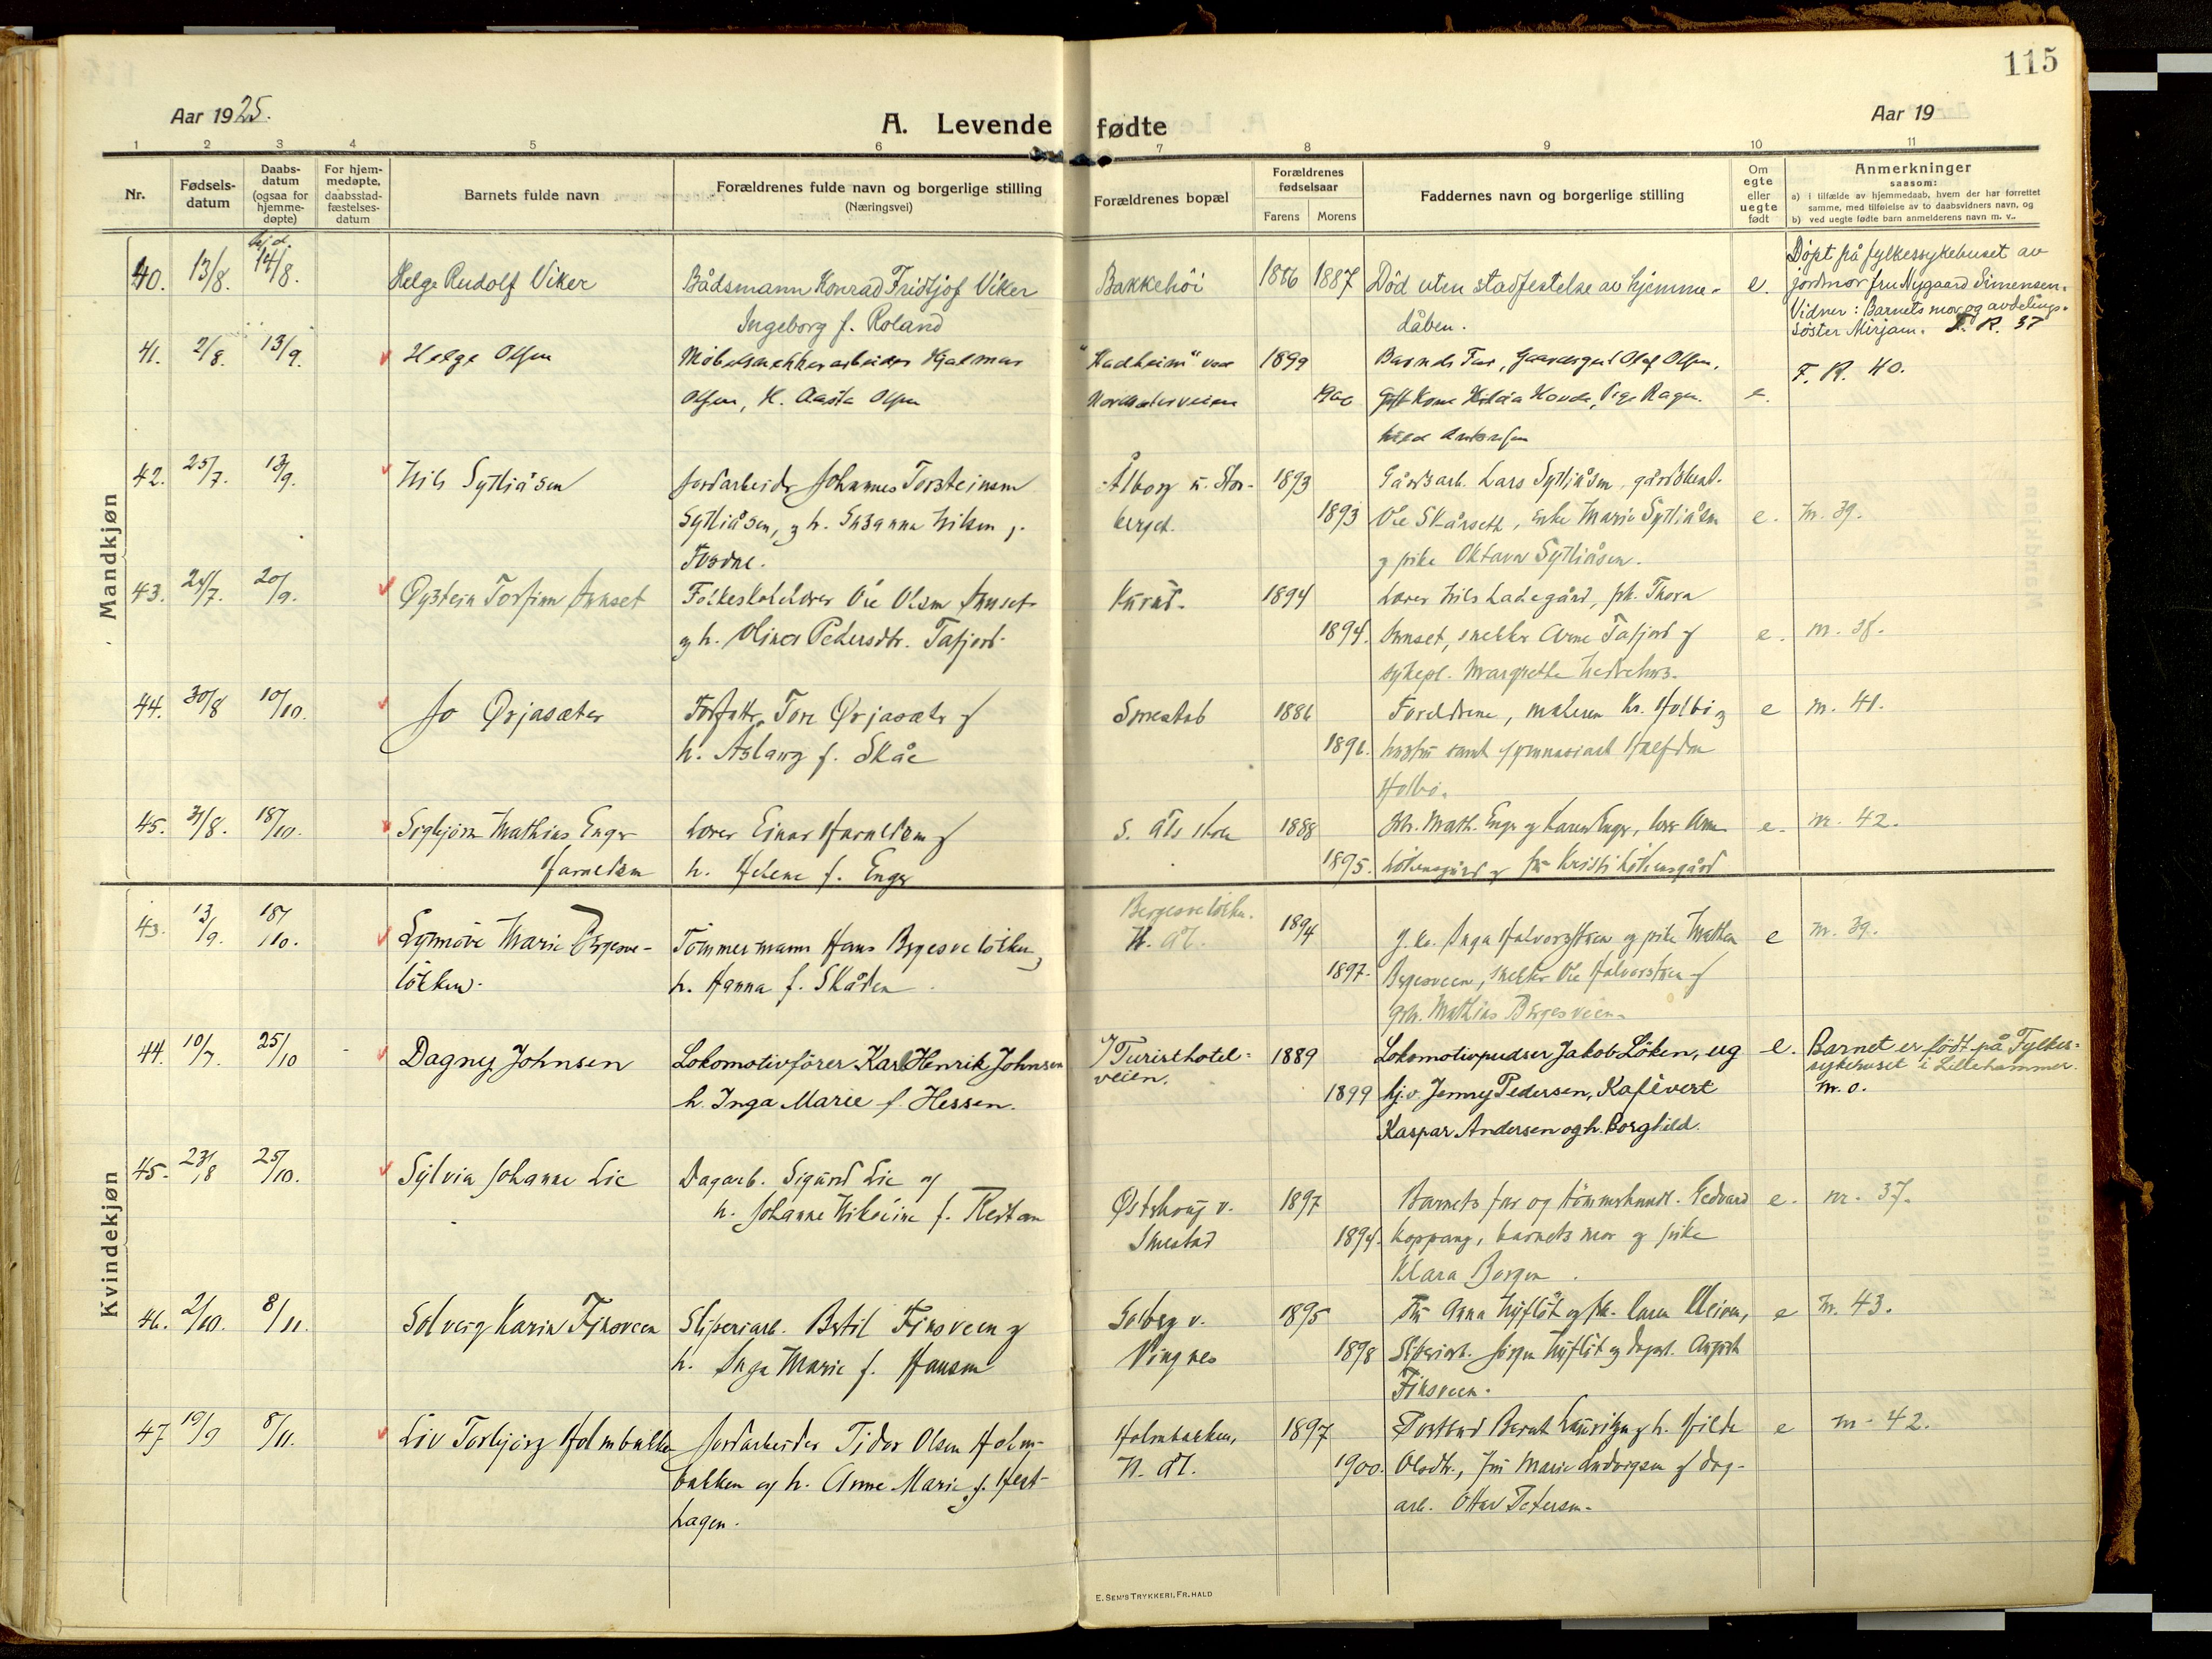 115
Aar 1925.
A. Levende fødte
Aar 19
1 2 3 4 5 6 7 8 9 10 11
Nr.
Fødsels-
datum
Daabs-
datum
(ogsaa for
hjemme-
døpte)
For hjem-
medøpte,
daabsstad-
fæstelses-
datum
Barnets fulde navn
Forældrenes fulde navn og borgerlige stilling
(Næringsvei)
Forældrenes bopæl
Forældrenes
fødselsaar
Farens Morens
Faddernes navn og borgerlige stilling
Om
egte
eller
uegte
født
Anmerkninger
saasom:
a) i tilfælde av hjemmedaab, hvem der har forrettet
samme, med tilføielse av to daabsvidners navn, og
b) ved uegte fødte barn anmelderens navn m. v..
Mandkjøn
hj.d.
40. 13/8. 14/8. Helge Rudolf Viker Bådsmann Konrad Fridtjof Viker Bakkehöi 1887 Död uten stadfestelse av hjemme- e.
Ingeborg f. Roland dåben.
Döpt på fylkessykehuset av
jordmor fru Nygaard Simensen.
Vidner: Barnets mor og avdelings-
söster Mirjam. F. R. 37
41. 2/8. 13/9. Helge Olsen Möbelsnekkerarbeider Hjalmar 1899 Barnets Far, Gaardsgut Olaf Olsen, F. R. 40.
Olsen, H. Aasta Olsen Kone Hovde, Pige Ragn- e.
hild
42. 25/7. 13/9. Nils Sytliåsen Jordarbeider Johannes Torsteinsen Ålborg 1893 Gårdsarb. Lars Sytliåsen,
Sytliåsen, og h. Susanna Nilsen f. berget. 1893 Ole Skårseth, enke Marie Sytliåsen e. m. 39.
og pike Oktava Sytliåsen.
43. 24/7. 20/9. Øystein Torfinn Folkeskolelærer Ole Olsen 1894 Lærer Nils Ladegård, frk. Thora
og h. Oline Pedersdtr. Tafjord. 1894. snekker Arne Tafjord og e. m. 38.
sykepl. Margrethe
44. 30/8 10/10. Jo Ørjasæter Forfatter Tore Ørjasæter og Smestad 1886 Foreldrene, maleren Kr. Holbö og e m. 41.
h. Aslaug f. Skåe 1896. hustru samt gymnasiast Halfdan
Holbö.
45. 31/8. 18/10. Sigbjörn Mathias Enger Lærer Einar S. Ål skole 1888 Math. Enger og Karen Enger, e. m. 42.
h. Helene f. Enger 1895. fru Kristi
Kvindekjøn
43. 13/9. 18/10. Synnöve Marie Bergesve- Tömmermann Hans Bergesvelökken, Bergesvelökken. 1894 og pike e m. 39.
lökken. h. Hanna f. Skåden N. Ål. 1897. Bergesveen, snekker Ole Halvorstuen og
Mathias Bergesveen.
44. 10/7. 25/10 Dagny Johnsen Lokomotivförer Karl Henrik Johnsen Turisthotel- 1889 Lokomotivpudser Jakob Löken, ug e. Barnet er födt på Fylkes-
h. Inga Marie f. Hessen. veien. 1899 hj.v. Jenny Pedersen, Kafévert sykehuset i Lillehammer.
Kaspar Andersen og h. Borghild. m. o.
45. 23/8 25/10. Sylvia Johanne Lie Dagarb. Sigurd Lie og Østhaug v. 1897 Barnets far og tömmerhandl. Edvard e. m. 37.
h. Johanne Nikoline f. Smestad 1894. Koppang, barnets mor og pike
Klara Borgen.
46. 2/10. 8/11. Solveig Karin Finsveen Sliperiarb. Bertil Finsveen og Solberg v. 1895 Fru Anna Nyflöt og frk. e m. 43.
h. Inga Marie f. Hansen Vingnes 1898 Sliperiarb. Jörgen Nyflöt og dagarb. August
Finsveen.
47 19/9 8/11. Liv Torbjörg Holmbakken Jordarbeider Tidor Olsen Holm- Holmbakken, 1897 Postbud Bernt Lauritzen og h. Hilda e m. 42.
bakken og h. Anne Marie f. Hest- N. Ål. 1900. Olsdtr., fru Marie Ludvigsen og dag-
hagen. arb. Ottar Petersen.
E. SEM'S TRYKKERI, FR. HALD